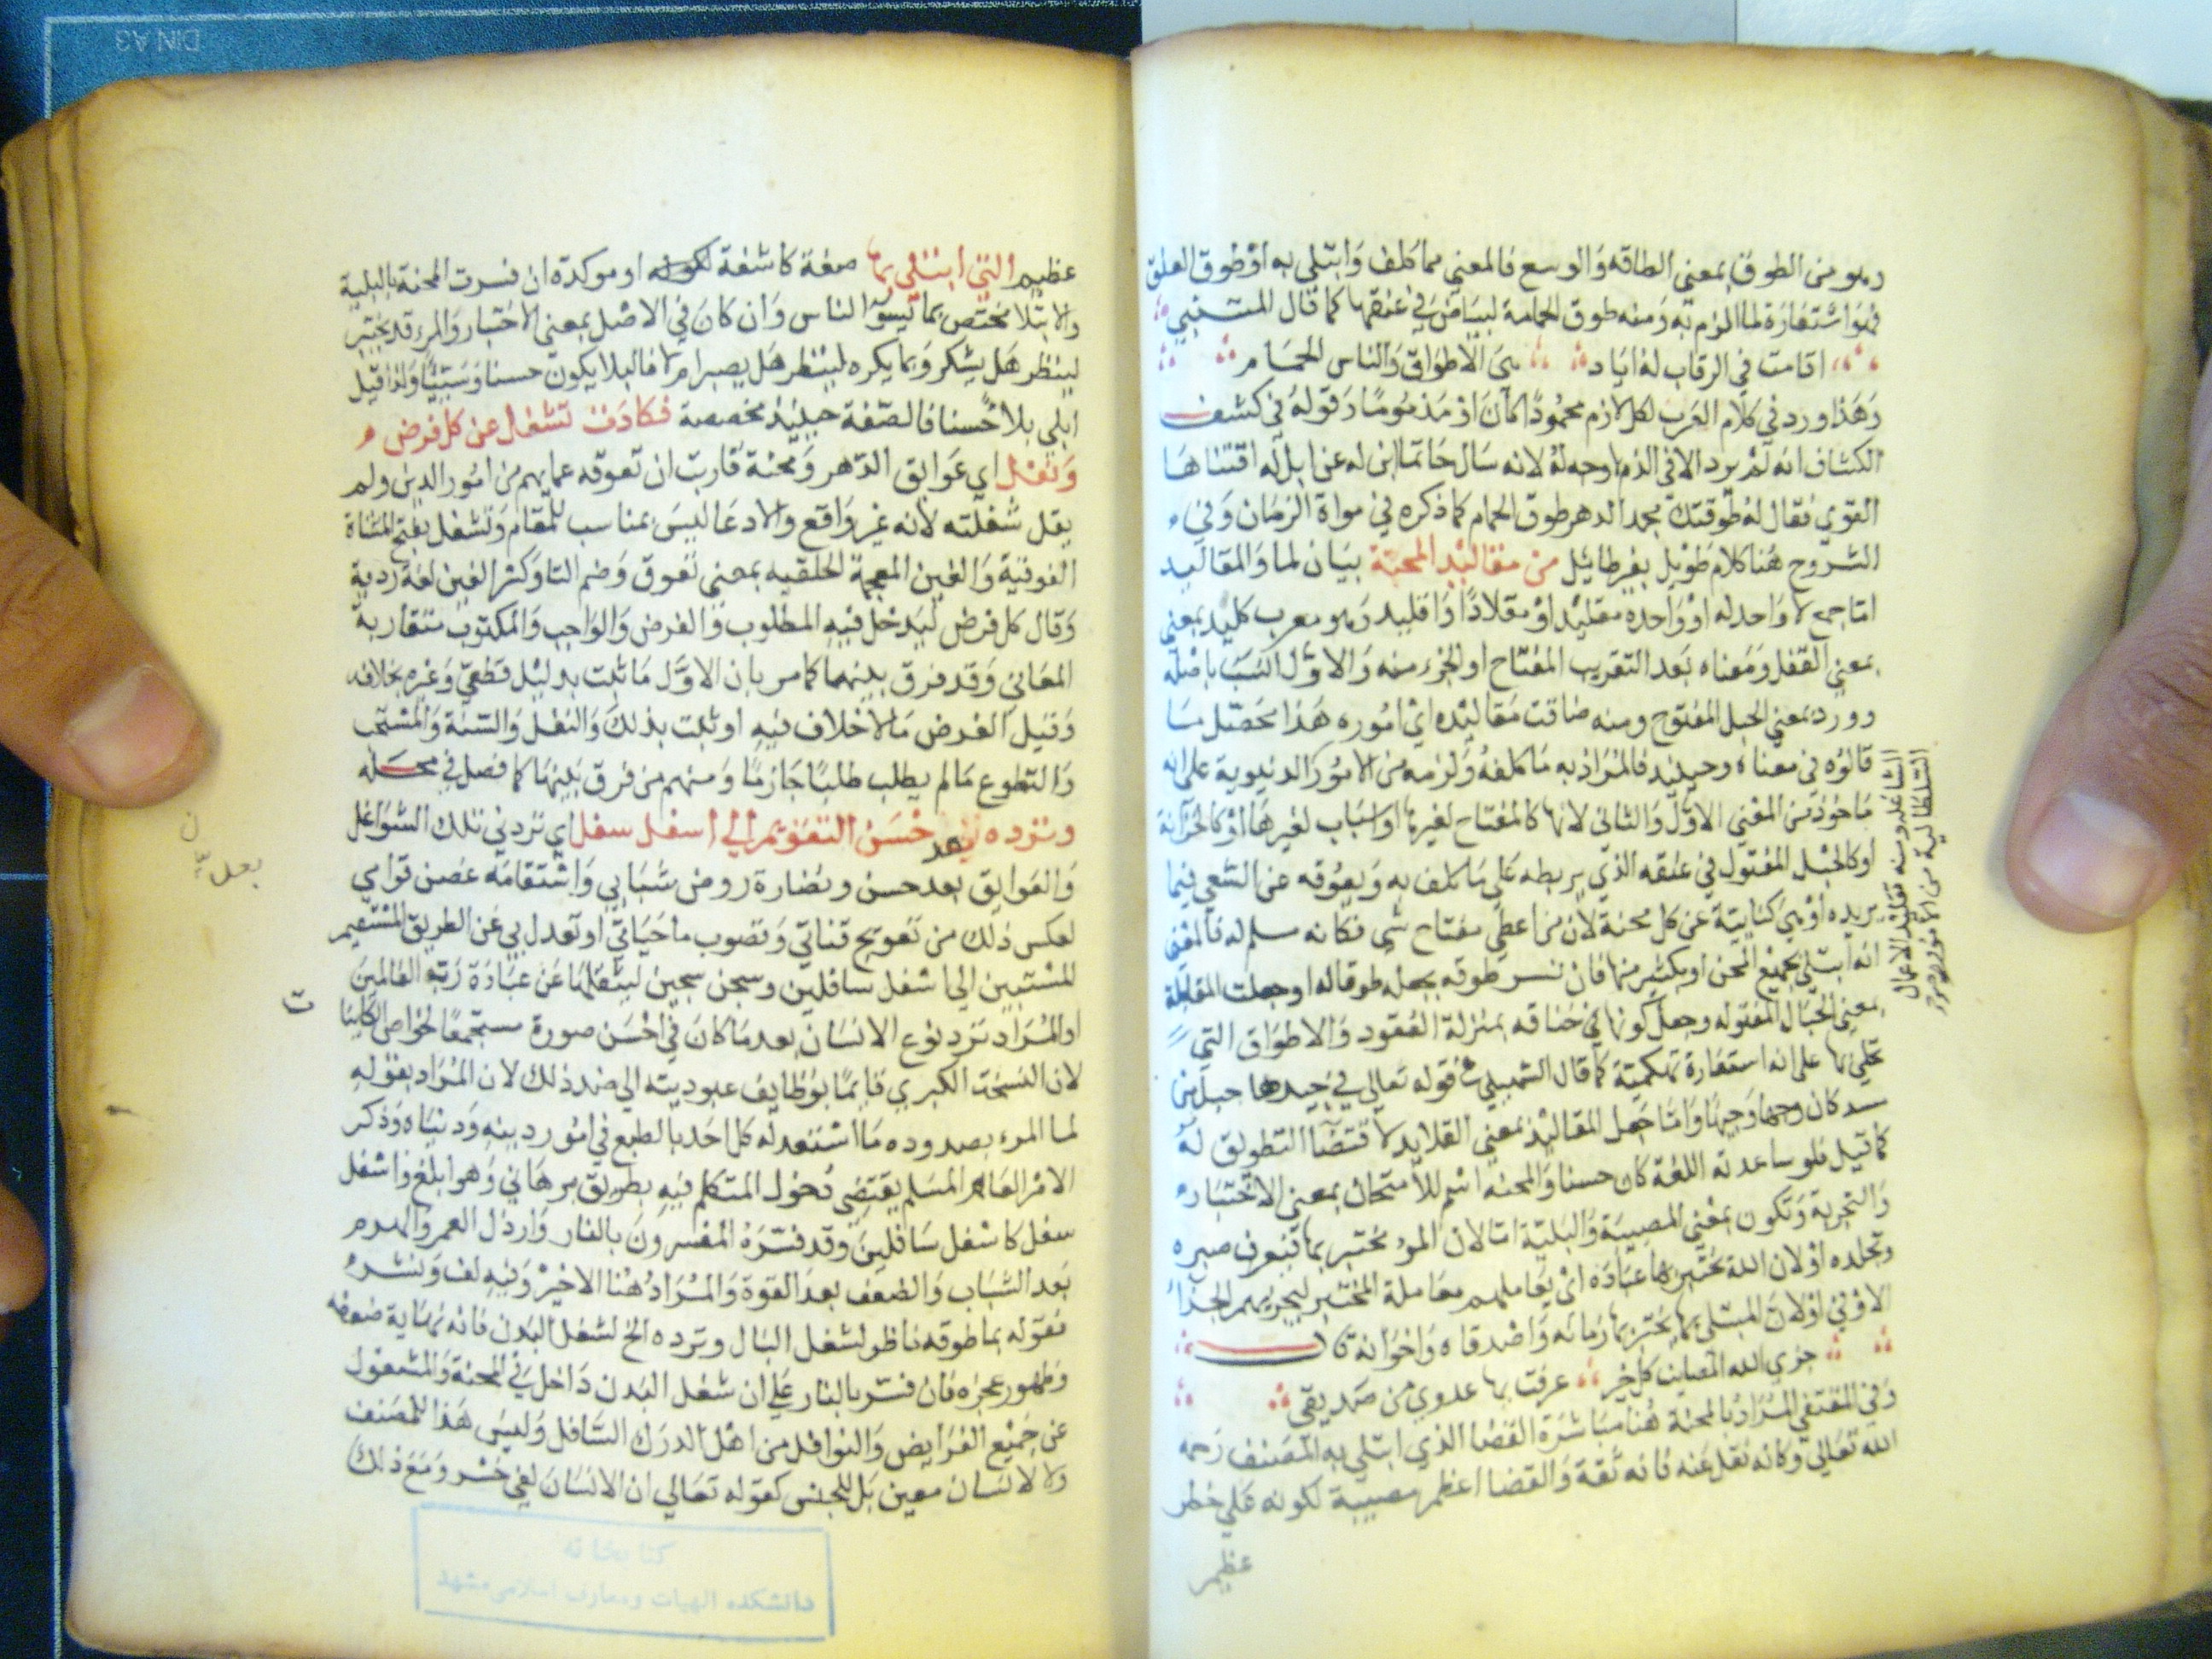 وهو من الطوق بمعنى الطاقه والوسع فالمعني مما كلف وابتلي به او طوق العنق
فهو استعارة لما الزم به ومنه طوق الحمامة لبياض في عنقها كما قال المتنبي
اقامت في الرقاب له اياد هي الاطواق والناس الحمام
وهذا ورد في كلام العرب لكل لازم محمودا كان او مذموما وقوله في كشف
الكشاف انه لم يرد الا في الذم لا وجه له لانه سال حاتما ابن له عن ابل له اقتناها
القوي فقال له طوقتك مجد الدهر طوق الحمام كما ذكره في مراة الزمان وفي
الشروح هنا كلام طويل بغير طائل من مقاليد المحنة بيان لما والمقاليد
اما جمع لا واحد له او واحده مقليد او مقلاد او اقليد وهو معرب كليد بمعني
بمعني القفل ومعناه بعد التقريب المفتاح او الجزء منه والاول انسب باصله
وورد بمعني الحبل المفتوح ومنه ضاقت مقاليده اي اموره هذا محصل ما
قالوه في معناه وحينئذ فالمراد به ما كلفه ولزمه من الامور الدنيوية على انه
ماخوذ من المعني الاول والثاني لانها كالمفتاح لغيرها او اسباب لغيرها او كالخزانة
او كالحبل المفتول في عنقه الذي يربطه على ما كلف به ويعوقه عن السعي فيما
يريده او هي كناية عن كل محنة لان من اعطي مفتاح شي فكانه سلم له فالمعني
انه ابتلي بجميع المحن او بكثير منها فان فسر طوقه بجعله طوقا له او جعلت المقاليد
بمعني الحبال المفتوله وجعل كونها في خناقه بمنزلة العقود والاطواق التي
تحلي بها على انه استعارة تهكمية كما قال السهيلي في قوله تعالي في جيدها حبل من
مسد كان وجها وجيها واما جعل المقاليد بمعني القلايد لاقتضا التطويق له
كما قيل فلو ساعدته اللغة كان حسنا والمحنه اسم للامتحان بمعني الاختبار
والتجربة وتكون بمعني المصيبة والبلية اما لان المرء يختبر بها فيعرف صبره
وتجلده او لان الله يختبر بها عباده اي يعاملهم معاملة المختبر ليجزيهم الجزاء
الاوفي او لان المبتلي بها يختبر بها زمانه واصدقاه واخوانه قال
جزي الله المصايب كل خير عرفت بها عدوي من صديقي
وفي المقتفي المراد بالمحنة هنا مباشرة القضا الذي ابتلي به المصنف رحمه
الله تعالي وكانه نقل عنه فانه ثقة والقضا اعظم مصيبة لكونه علي خطر
عظيم
عظيم التي ابتلي بها صفة كاشفة او موكدة ان فسرت المحنة بالبلية
والابتلا مختص بما يسوء الناس وان كان في الاصل بمعني الاختبار والمرء قد يختبر
لينظر هل يشكر وبما يكره لينظر هل يصبر ام لا فالبلا يكون حسنا وسيئا ولذا قيل
ابلي بلا حسنا فالصفة حينئذ مخصصة فكادت تشغل عن كل فرض
ونفل اي عوايق الدهر ومحنة قاربت ان تعوقه عما يهم من امور الدين ولم
يقل شغلته لانه غير واقع والادعا ليس بمناسب للمقام وتشغل بفتح المثناة
الفوقية والغين المعجمة الحلقيه بمعني تعوق وضم التا وكسر الغين لغة ردية
وقال كل فرض ليدخل فيه المطلوب والفرض والواجب والمكتوب متقاربة
المعاني وقد فرق بينهما كما مر بان الاول ما ثبت بدليل قطعي وغيره بخلافه
وقيل الفرض ما لا خلاف فيه او ثبت بذلك والنفل والسنة والمستحب
والتطوع ما لم يطلب طلبا جازما ومنهم من فرق بينها كما فصل في محله
وترده بعد حسن التقويم الي اسفل سفل اي تردني تلك الشواغل
والعوايق بعد حسن ونضارة روض شبابي واستقامة غصن قوامي
لعكس ذلك من تعويج قناتي ونضوب ما حياتي او تعدل بي عن الطريق المستقيم
للمستبين الي اسفل سافلين وسجن سجين ليثقلها عن عبادة رب العالمين
او المراد ترد نوع الانسان بعد ما كان في احسن صورة مستجمعا لخواص الكاينات
لان النسخة الكبري قايما بوظايف عبوديته الي ضد ذلك لان المراد بقوله
لما المرء بصدوده ما استعد له كل احد بالطبع في امور دينه ودنياه وذكر
الامر العام المسلم يقتضي دخول المتكلم فيه بطريق برهاني وهو ابلغ واسفل
سفل كاسفل سافلين وقد فسره المفسرون بالنار وارذل العمر والهرم
بعد الشباب والضعف بعد القوة والمراد هنا الاخير وفيه لف ونشر
فقوله بما طوقه ناظر لشغل البال وترده الخ لشغل البدن فانه نهاية ضعفه
وظهور عجزه فان فسر بالنار علي ان شغل البدن داخل في المحنة والمشغول
عن جميع الفرايض والنوافل من اهل الدرك السافل وليس هذا للمصنف
ولا لانسان معين بل للجنس كقوله تعالي ان الانسان لفي خسر ومع ذلك
كتابخانه
دانشكده الهيات ومعارف اسلامى مشهد
DIN A3